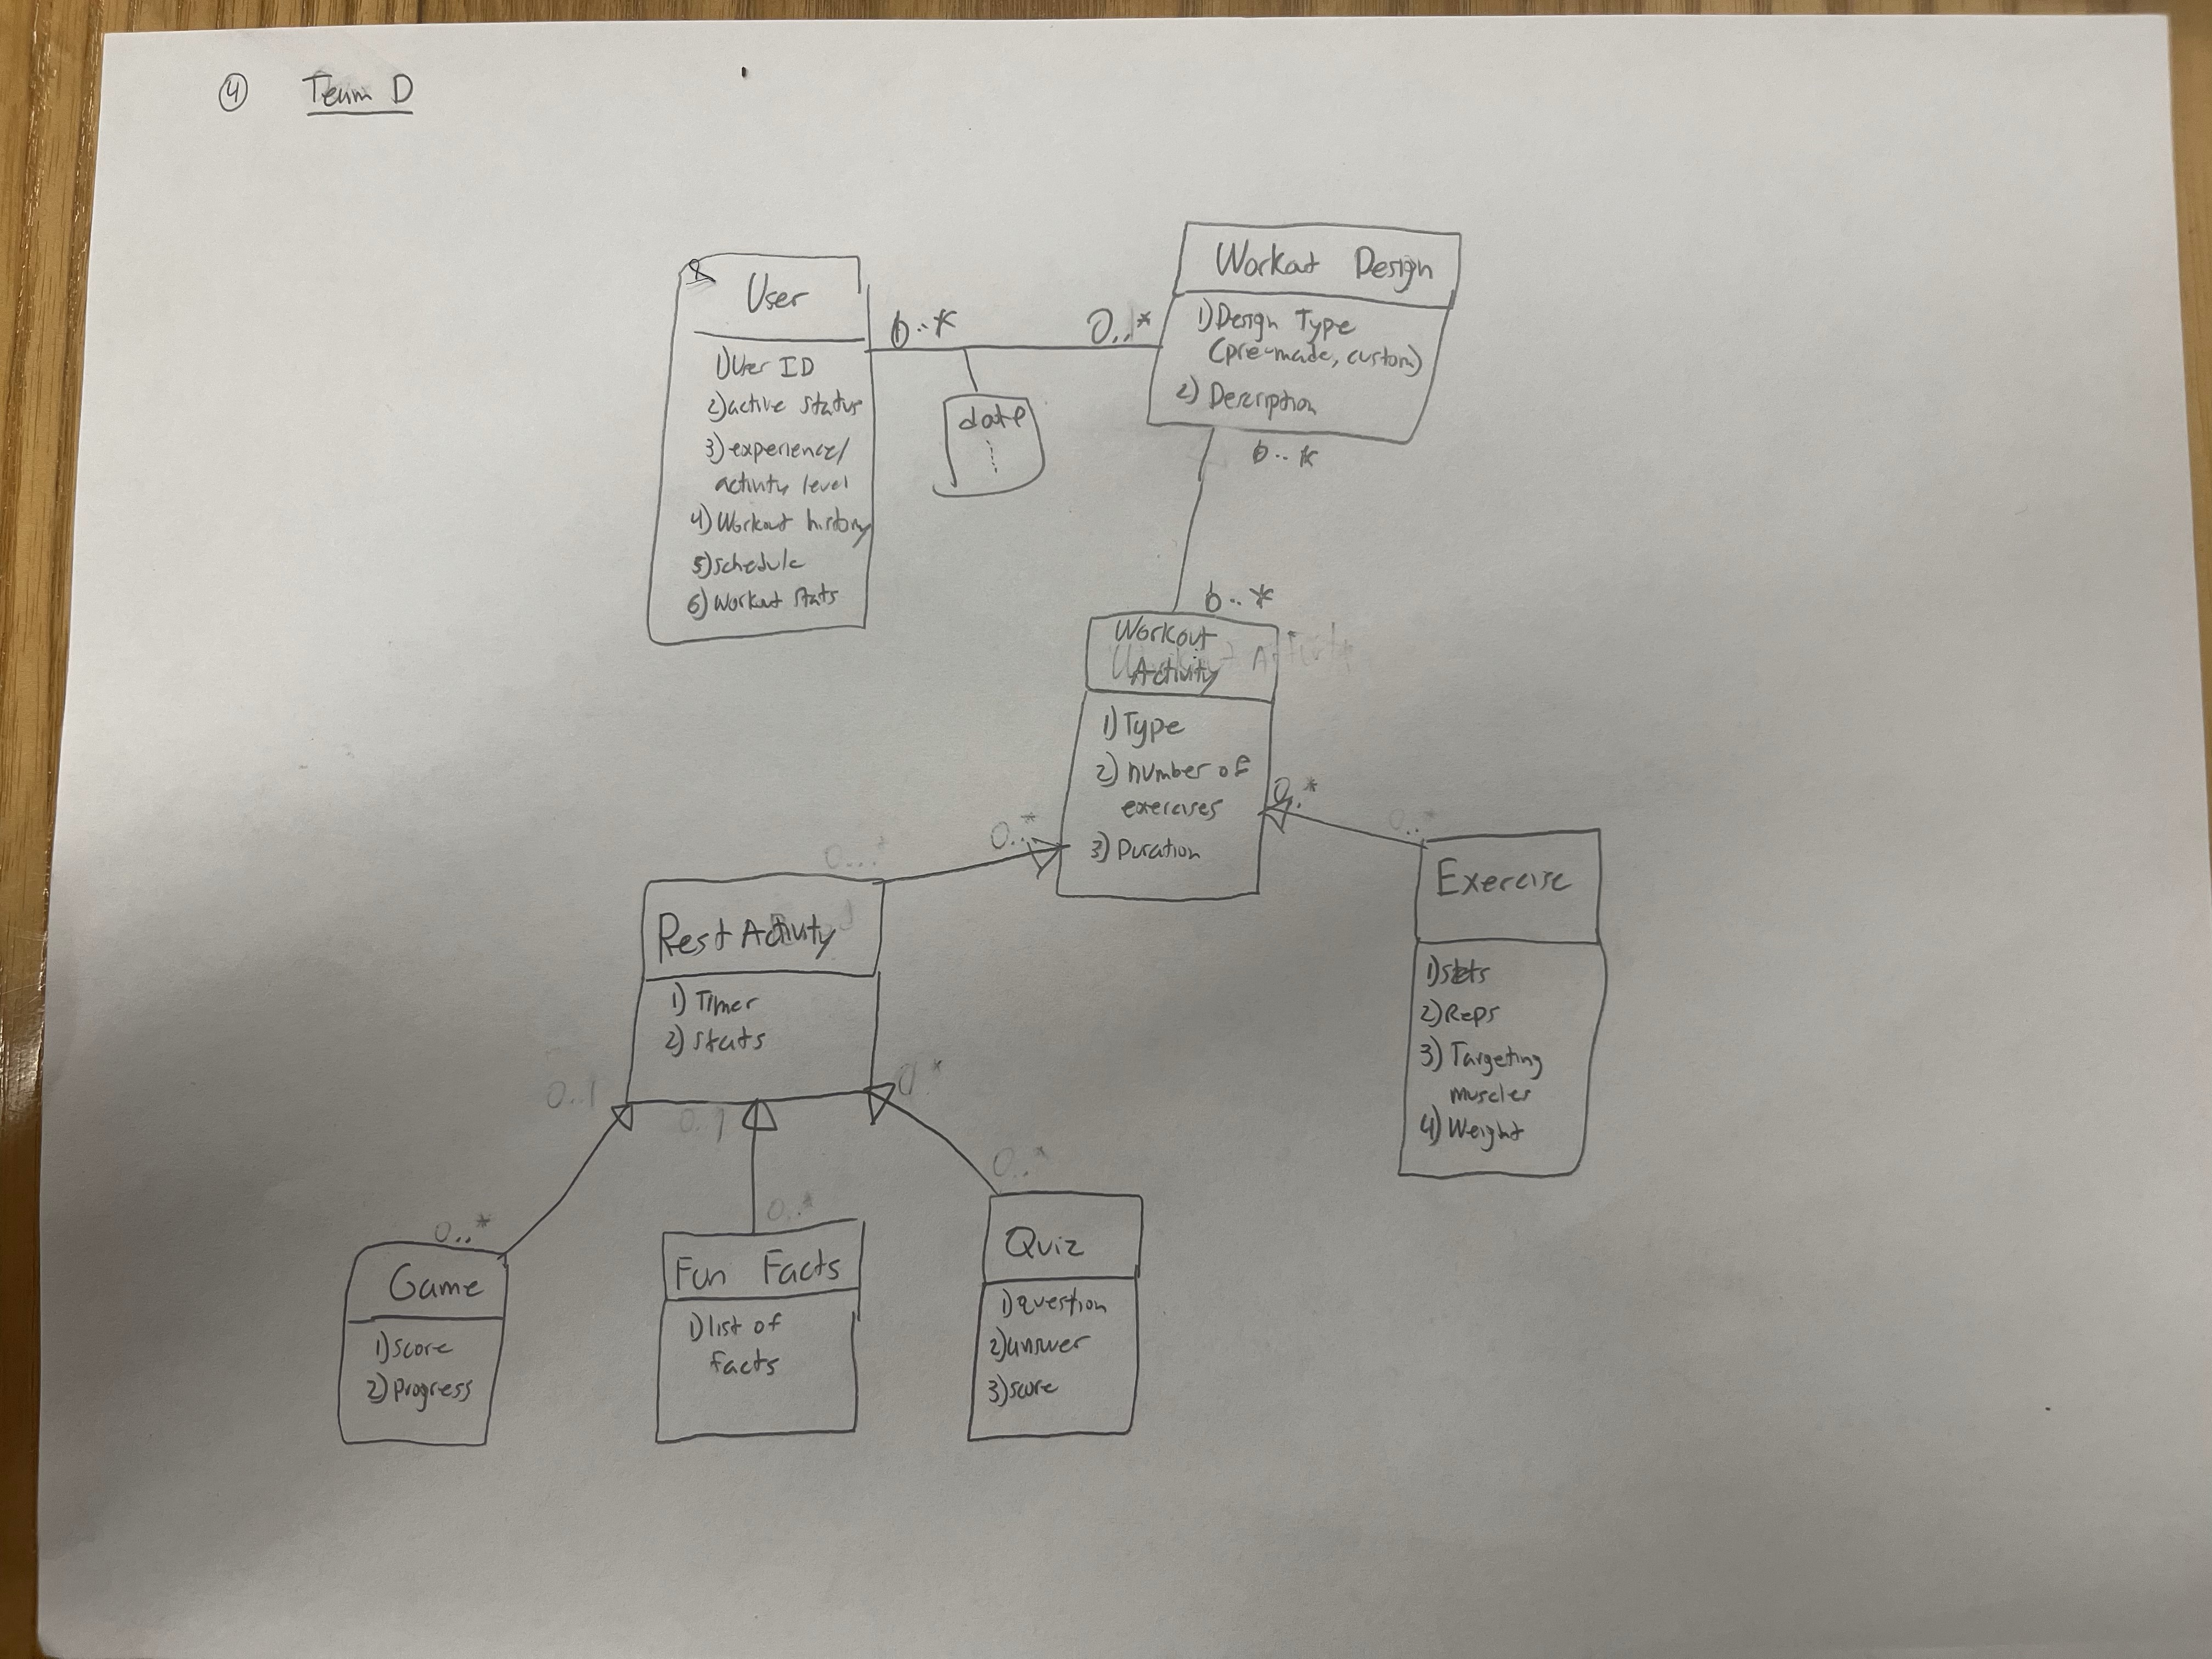 ④ Team D
User
1) User ID
2) active status
3) experience/
activity level
4) Workout history
5) schedule
6) Workout stats
0..*
0..*
date
Workout Design
1) Design Type
(pre-made, custom)
2) Description
0..*
0..*
Workout
Activity
1) Type
2) number of
exercises
3) Duration
0..*
0..*
0..*
0..*
Exercise
1) sets
2) Reps
3) Targeting
muscles
4) Weight
Rest Activity
1) Timer
2) stats
0..1
0..1
0..*
0..*
0..*
0..*
Game
1) score
2) progress
Fun Facts
1) list of
facts
Quiz
1) question
2) answer
3) score